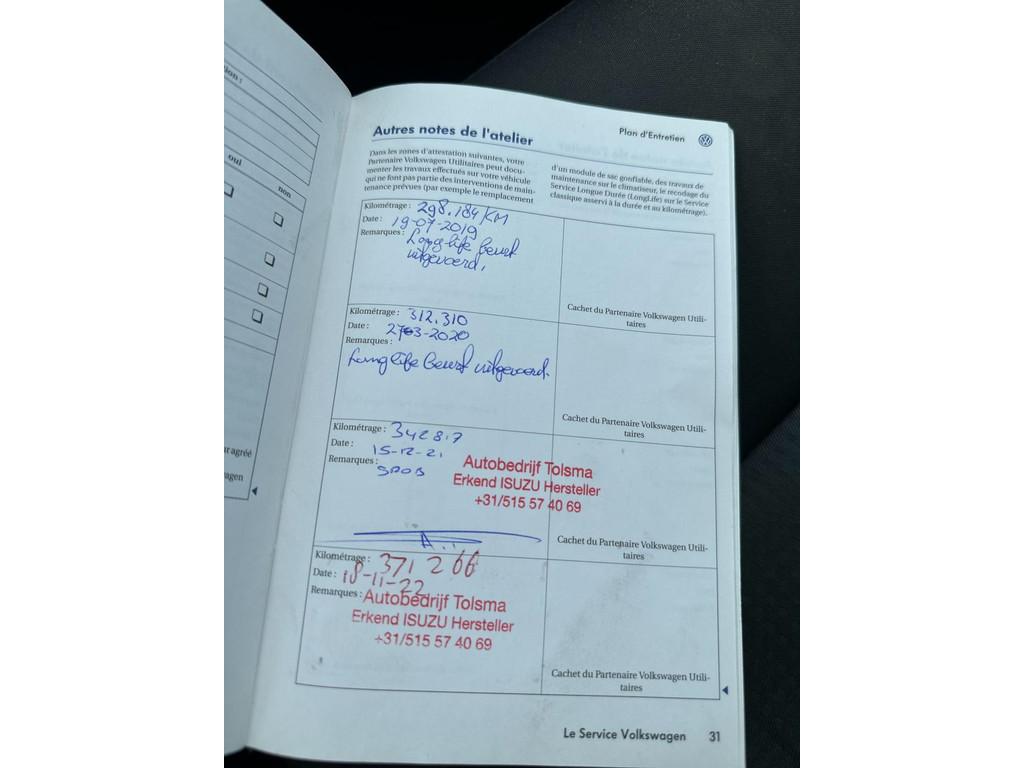 tion :
oui
non
ur agréé
wagen
Plan d'Entretien
Autres notes de l'atelier
Dans les zones d'attestation suivantes, votre
Partenaire Volkswagen Utilitaires peut docu-
menter les travaux effectués sur votre véhicule
qui ne font pas partie des interventions de main-
tenance prévues (par exemple le remplacement
d'un module de sac gonflable, des travaux de
maintenance sur le climatiseur, le recodage du
Service Longue Durée (LongLife) sur le Service
classique asservi à la durée et au kilométrage).
Kilométrage : 298.184 KM
Date : 19-07-2019
Remarques : Longlife beurt
uitgevoerd.
Cachet du Partenaire Volkswagen Utili-
taires
Kilométrage : 312.310
Date : 2703-2020
Remarques :
Longlife beurt uitgevoerd.
Cachet du Partenaire Volkswagen Utili-
taires
Kilométrage : 342817
Date : 15-12-21
Remarques :
Autobedrijf Tolsma
Erkend ISUZU Hersteller
+31/515 57 40 69
Cachet du Partenaire Volkswagen Utili-
taires
Kilométrage : 371 266
Date : 18-11-22
Remarques : Autobedrijf Tolsma
Erkend ISUZU Hersteller
+31/515 57 40 69
Cachet du Partenaire Volkswagen Utili-
taires
Le Service Volkswagen 31